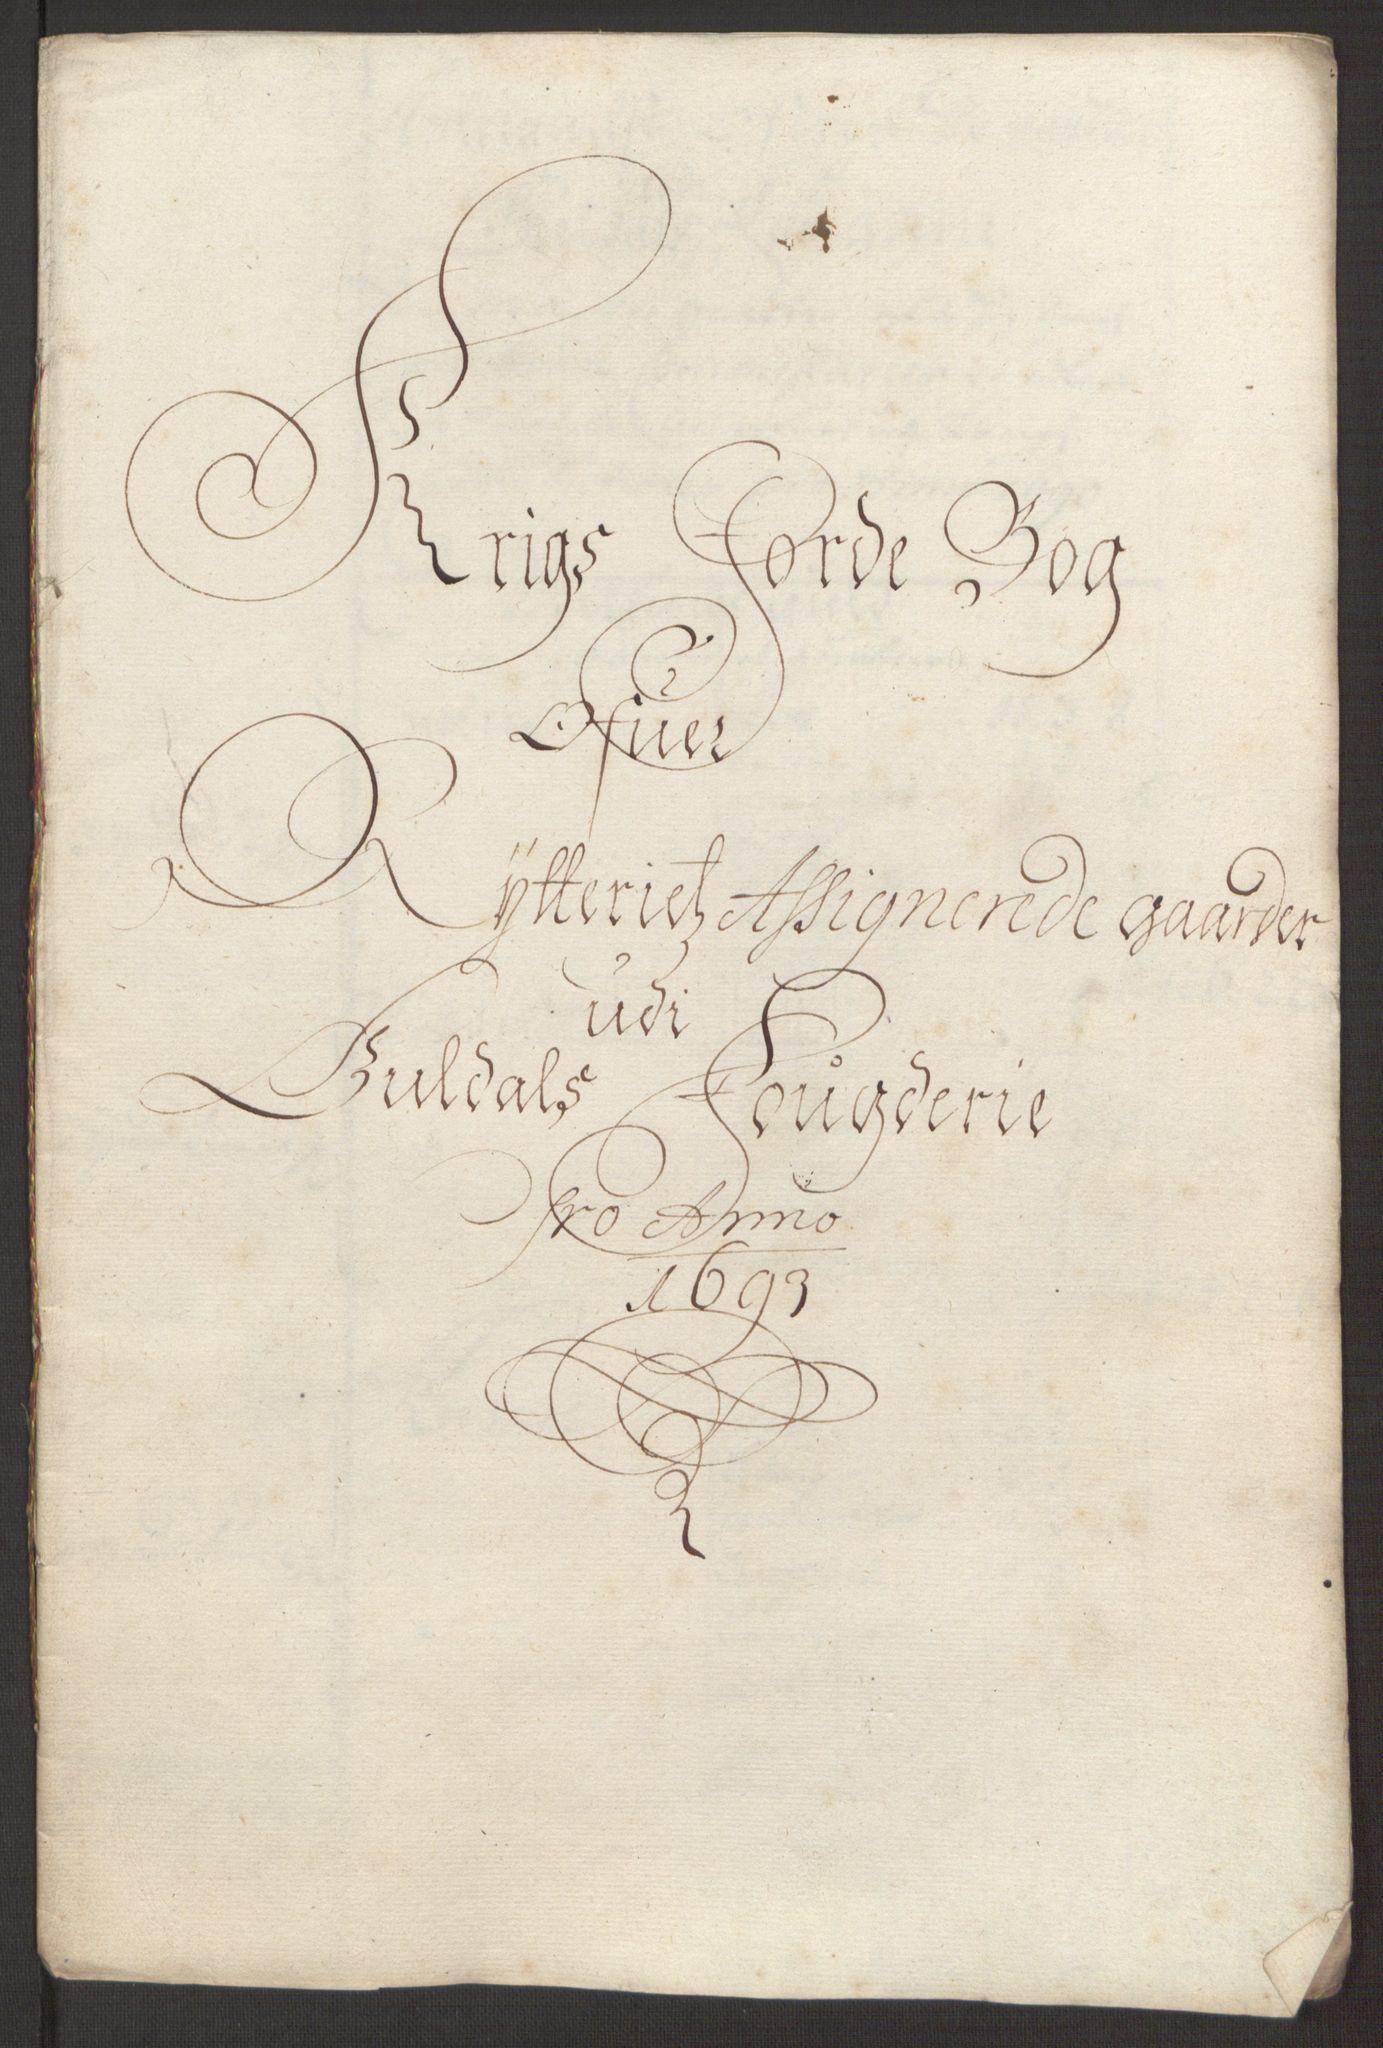 Krigs Jorde Bog
Ofuer
Rÿtterietz Assignerede gaarder
udi
Guldals Fougderie
Pro Anno
1693